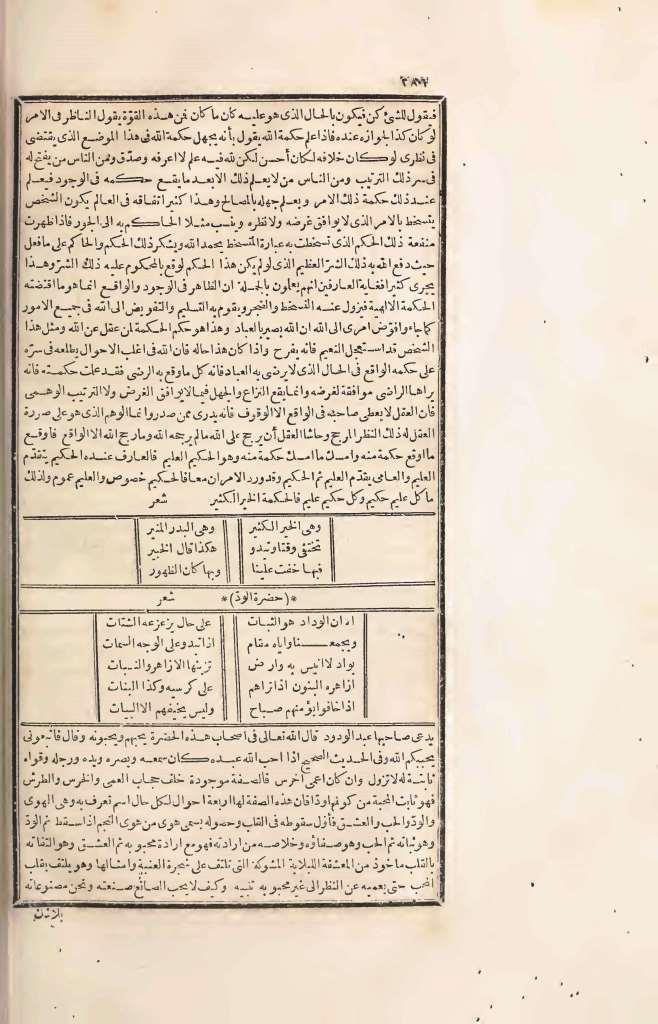 فيقول للشئ كن فيكون بالحال الذى هو عليه كان ما كان فمن هذه القوّة يقول الناظر فى الامر
لو كان كذا لجوازه عنده فاذا علم حكمة الله يقول بأنه يجهل حكمة الله فى هذا الموضع الذى يقتضى
فى نظرى لو كان خلافه لكان أحسن لكن لله فيه علم لا اعرفه وصدّق ومن الناس من يفتح له
فى سر ذلك الترتيب ومن الناس من لا يعلم ذلك الا بعد ما يقع حكمه فى الوجود فيعلم
عند ذلك حكمة ذلك الامر ويعلم جهله بالمصالح وهذا كثير اتفاقه فى العالم يكون الشخص
يتسخط بالامر الذى لا يوافق غرضه ولا نظره وينسب مثلا الحاكم به الى الجور فاذا ظهرت
منفعة ذلك الحكم الذى تسخطت به عبارة المتسخط يحمد الله ويشكر ذلك الحكم والحاكم على ما فعل
حيث دفع الله به ذلك الشرّ العظيم الذى لو لم يكن هذا الحكم لوقع بالمحكوم عليه ذلك الشرّ وهذا
يجرى كثيرا فغاية العارفين انهم يعلمون بالجملة ان الظاهر فى الوجود والواقع انما هو ما اقتضته
الحكمة الالهية فيزول عنه التسخط والضجر ويقوم به التسليم والتفويض الى الله فى جميع الامور
كما جاء وأفوّض امرى الى الله ان الله بصير بالعباد وهذا هو حكم الحكمة لمن عقل عن الله ومثل هذا
الشخص قد استعجل النعيم فانه يفرح واذا كان هذا حاله فان الله فى اغلب الاحوال يطلعه فى سرّه
على حكمه الواقع فى الحال الذى لا يرضى به العباد فانه كل ما وقع به الرضى فقد علمت حكمته فانه
يراها الراضى موافقة لغرضه وانما يقع النزاع والجهل فيما لا يوافق الغرض ولا الترتيب الوهمى
فان العقل لا يعطى صاحبه فى الواقع الا الوقوف فانه يدرى ممن صدر وانما الوهم الذى هو على صورة
العقل له ذلك النظر المرجح وحاشا العقل أن يرجح على الله ما لم يرجحه الله وما رجح الله الا الواقع فاوقع
ما اوقع حكمة منه وامسك ما امسك حكمة منه وهو الحكيم العليم فالعارف عنده الحكيم يتقدّم
العليم والعامى يقدّم العليم ثم الحكيم وقد ورد الامران معا فالحكيم خصوص والعليم عموم ولذلك
ما كل عليم حكيم وكل حكيم عليم فالحكمة الخير الكثير شعر
وهى الخير الكثير وهى البدر المنير
تختفى وقتا وتبدو هكذا قال الخبير
فبها خفت علينا وبها كان الظهور
*(حضرة الودّ)* شعر
ان الوداد هو الثبات على حال يزعزعه الشتات
ويجمعنا واياه مقام اذا تبدو على الوجه السمات
بواد لا انيس به وارض تزينها الازاهر والنبات
ازاهره البنون اذا تراهم على كرسيه وكذا البنات
اذا خافوا يؤمنهم صباح وليس يخيفهم الا البيات
يدعى صاحبها عبد الودود قال الله تعالى فى اصحاب هذه الحضرة يحبهم ويحبونه وقال فاتبعونى
يحببكم الله وفى الحديث الصحيح اذا احب الله عبده كان سمعه وبصره ويده ورجله وقواه
ثابتة له لا تزول وان كان اعمى أخرس فالصفة موجودة خلف حجاب العمى والخرس والطرش
فهو ثابت المحبة من كونها ودّا فان هذه الصفة لها اربعة احوال لكل حال اسم تعرف به وهى الهوى
والودّ والحب والعشق فأوّل سقوطه فى القلب وحصوله يسمى هوى من هوى النجم اذا سقط ثم الودّ
وهو ثباته ثم الحب وهو صفاؤه وخلاصه من ارادته فهو مع ارادة محبوبه ثم العشق وهو التفافه
بالقلب مأخوذ من العشقة اللبلابة المشوكة التى تلتف على شجرة العنبية وامثالها وهو يلتف بقلب
المحب حتى يعميه عن النظر الى غير محبوبه تنبيه وكيف لا يحب الصانع صنعته ونحن مصنوعاته